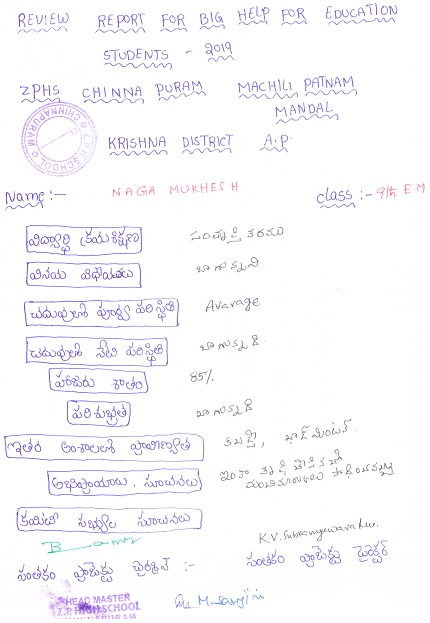 REVIEW REPORT FOR BIG HELP FOR EDUCATION
STUDENTS - 2019
ZPHS CHINNA PURAM MACHILI PATNAM
MANDAL
KRISHNA DISTRICT A.P.
Name:- NAGA MUKHESH class:- 9th E.M
విద్యార్థి క్రమశిక్షణ సంతృప్తి కరము
వినయ విధేయతలు బాగున్నవి
చదువులో పూర్వ పరిస్థితి Avarage
చదువులో నేటి పరిస్థితి బాగున్నది.
హాజరు శాతం 85%
పరిశుభ్రత బాగున్నది
ఇతర అంశాలలో ప్రావీణ్యత కబడ్డీ, బాడ్ మింటన్.
అభిప్రాయాలు, సూచనలు ఇంకా కృషి చేసినచో
మంచి మార్కులు సాధించవచ్చు
కమిటీ సభ్యుల సూచనలు
K.V. Subramanyeswara Rao.
సంతకం ప్రాజెక్టు ఛైర్మన్ :- సంతకం ప్రాజెక్టు డైరెక్టర్
HEAD MASTER
Z.P. HIGH SCHOOL